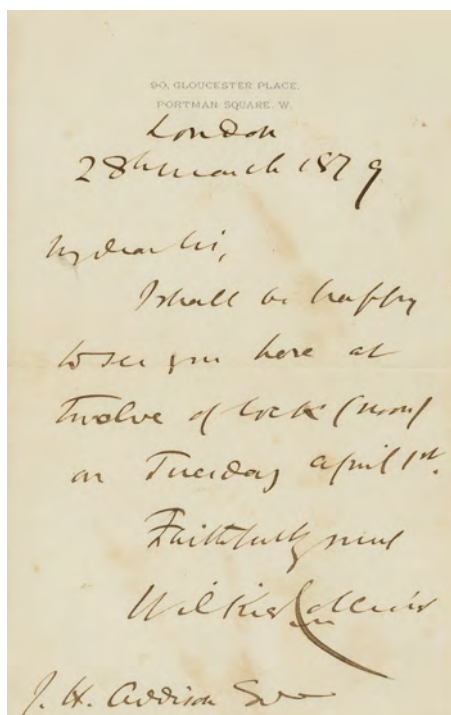 90, GLOUCESTER PLACE,
PORTMAN SQUARE. W.
London
28th March 1879
My dear Sir,
I shall be happy
to see you here at
Twelve o'clock (noon)
on Tuesday April 1st.
Faithfully yours
Wilkie Collins
J. H. Addison Esqre